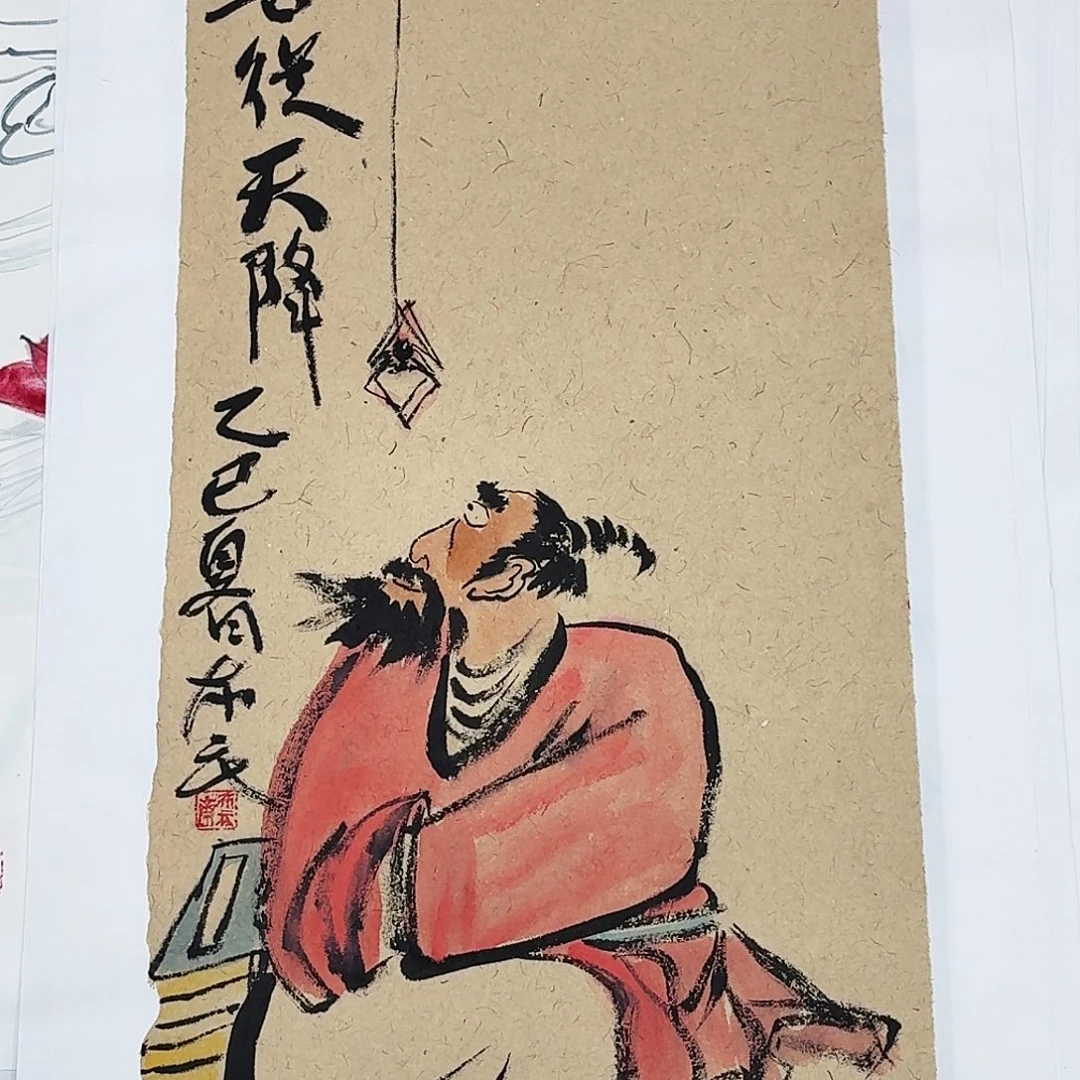 從天降乙巳夏日